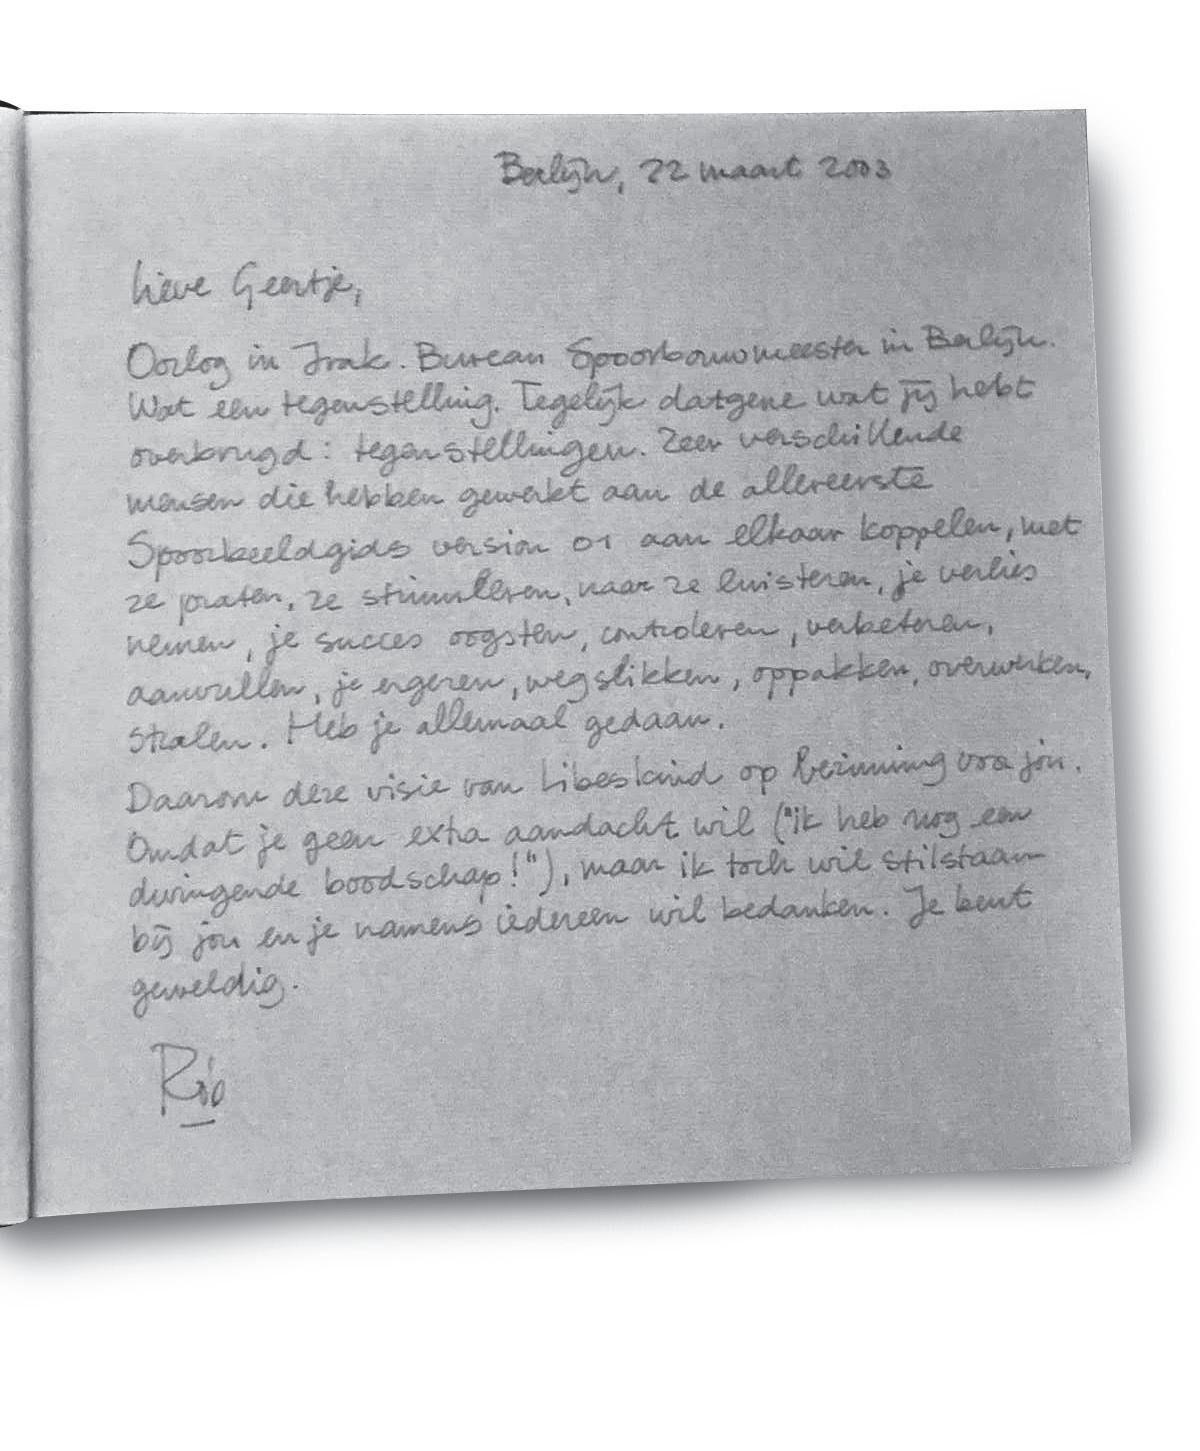 Berlijn, 22 maart 2003
Lieve Geertje,
Oorlog in Irak. Bureau Spoorbouwmeester in Berlijn.
Wat een tegenstelling. Tegelijk datgene wat jij hebt
overbrugd: tegenstellingen. Zeer verschillende
mensen die hebben gewerkt aan de allereerste
Spoorbeeldgids version 01 aan elkaar koppelen, met
ze praten, ze stimuleren, naar ze luisteren, je verlies
nemen, je succes oogsten, controleren, verbeteren,
aanvullen, je ergeren, wegslikken, oppakken, overwerken,
stralen. Heb je allemaal gedaan.
Daarom deze visie van Libeskind op bezinning voor jou.
Omdat je geen extra aandacht wil ("ik heb nog een
dwingende boodschap!"), maar ik toch wil stilstaan
bij jou en je namens iedereen wil bedanken. Je bent
geweldig.